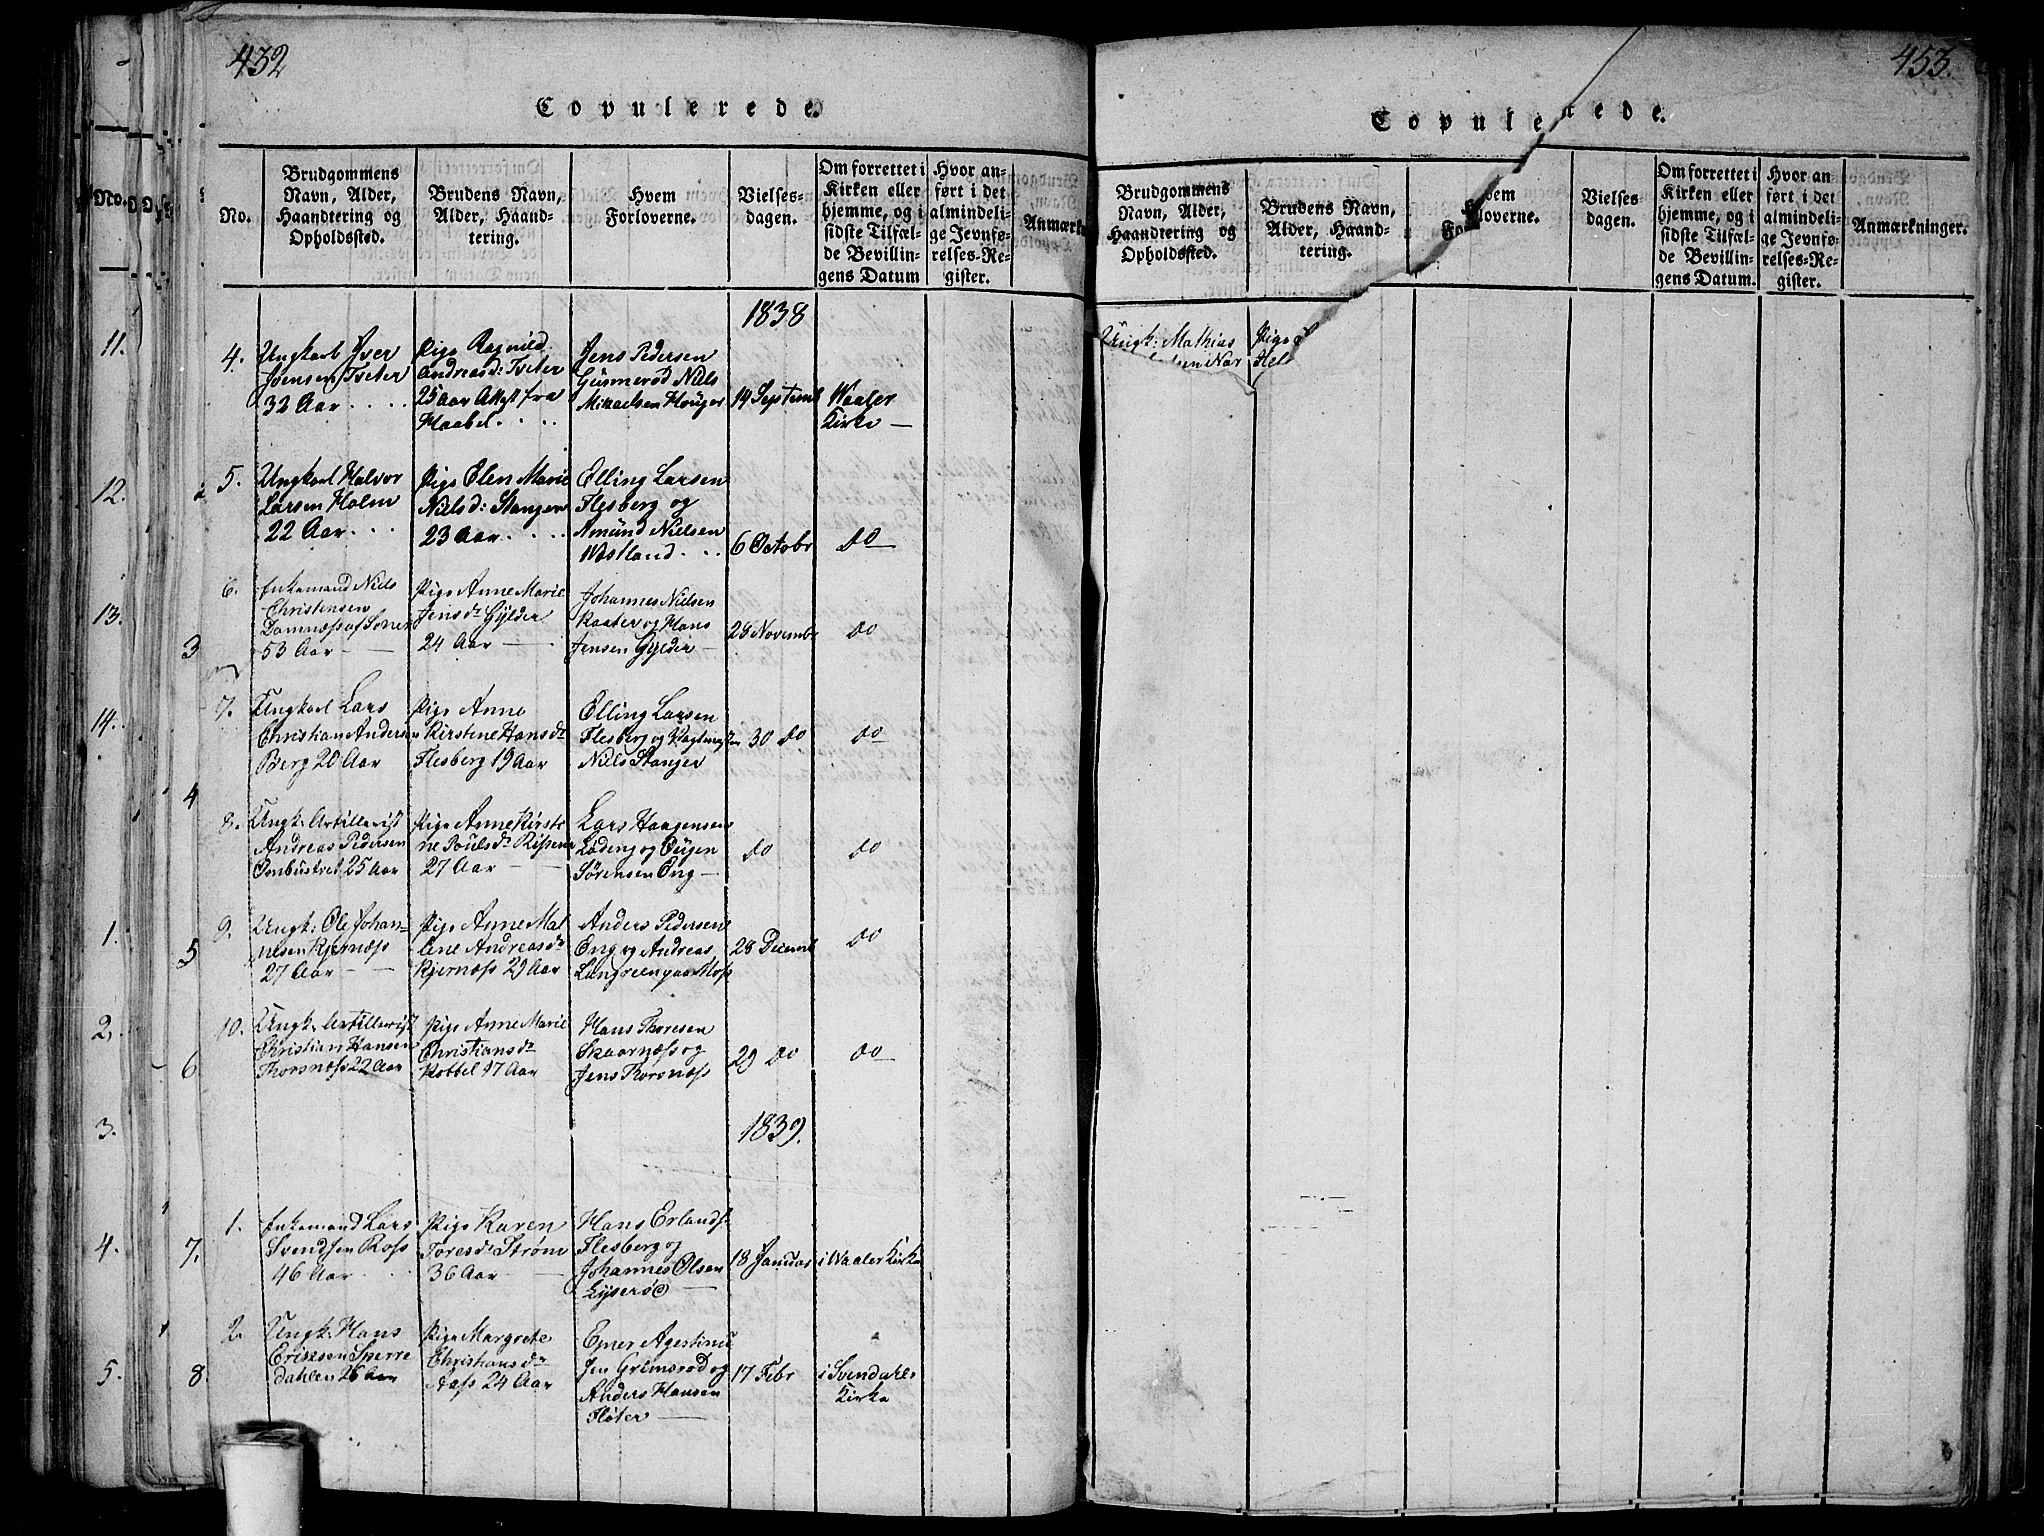 432
Copulerede.
No.
Brudgommens Navn, Alder, Haandtering og Opholdssted.
Brudens Navn, Alder, Haandtering.
Hvem Forloverne.
Vielsesdagen.
Om forrettet i Kirken eller hjemme, og i sidste Tilfælde Bevillingens Datum
Hvor anført i det almindelige Jevnførelses-Register.
Anmærkn
1838
4. Ungkarl Iver
Joensen Tveter
32 Aar
Pige Ragnild
Andreasd: Tveter
25 Aar
fra
Haabel
Jens Pedersen
Gusmerød Niels
Mikaelsen Houger
14 Septemb
Waaler
Kirke
5. Ungkarl Halvor
Larsen Holm
22 Aar
Pige Elen Marie
Nielsd: Stanger
23 Aar
Elling Larsen
Flesberg og
Amund Nielsen
Westland
6 Octobr
Do
6. Enkemand Niels
Christensen
Damnæss af Soner
53 Aar
Pige Anne Marie
Jensdr Gylder
24 Aar
Johannes Nielsen
Raater og Hans
Jensen Gylder
29 Novembr
Do
7. Ungkarl Lars
Christian Andersen
Berg 20 Aar
Pige Anne
Kirstine Hansdr
Flesberg 19 Aar
Elling Larsen
Flesberg og
Niels Stanger
30 Do
Do
8. Ungk: Artillerist
Andreas Pedersen
Ombustvet 25 Aar
Pige Anne Kirsti
ne Poulsdr
27 Aar
Lars Haagensen
Lødeng og
Sørensen Eng
Do
Do
9. Ungk: Ole Johan=
nesen Kjernæss
27 Aar
Pige Anne Mal
lene Andreasdr
Kjernæss 29 Aar
Anders Pedersen
Eng og Andreas
Langreen paa Moss
28 Decemb
Do
10. Ungk: Artillerist
Christian Hansen
Thorsnæss 22 Aar
Pige Anne Marie
Christiansdr
Kobbel 17 Aar
Hans Thoresen
Skaarnæss og
Jens Thorsnæss
29 Do
Do
1839.
1. Enkemand Lars
Svendsen Ross
46 Aar
Pige Karen
Toresdr Strøm
36 Aar
Hans Erlands
Flesberg og
Johannes Olsen
Lyserød
18 Januar
i Waaler Kirke
2. Ungk: Hans
Eriksen Sperre
dahlen 26 Aar
Pige Margrete
Christiansdr
Aass 24 Aar
Ejner Agestinu
sen Grimsrød og
Anders Hansen
Fløter
17 Febr
i Svendahls
Kirke
No.
11.
12.
13.
14.
1.
2.
3.
4.
5.
3
4
5
6
7.
8.
453.
Copulerede.
Brudgommens Navn, Alder, Haandtering og Opholdssted.
Brudens Navn, Alder, Haandtering.
Hvem Forloverne.
Vielsesdagen.
Om forrettet i Kirken eller hjemme, og i sidste Tilfælde Bevillingens Datum.
Hvor anført i det almindelige Jevnførelses-Register.
Anmærkninger.
Ungk: Mathias
Nar
Pige
Hel